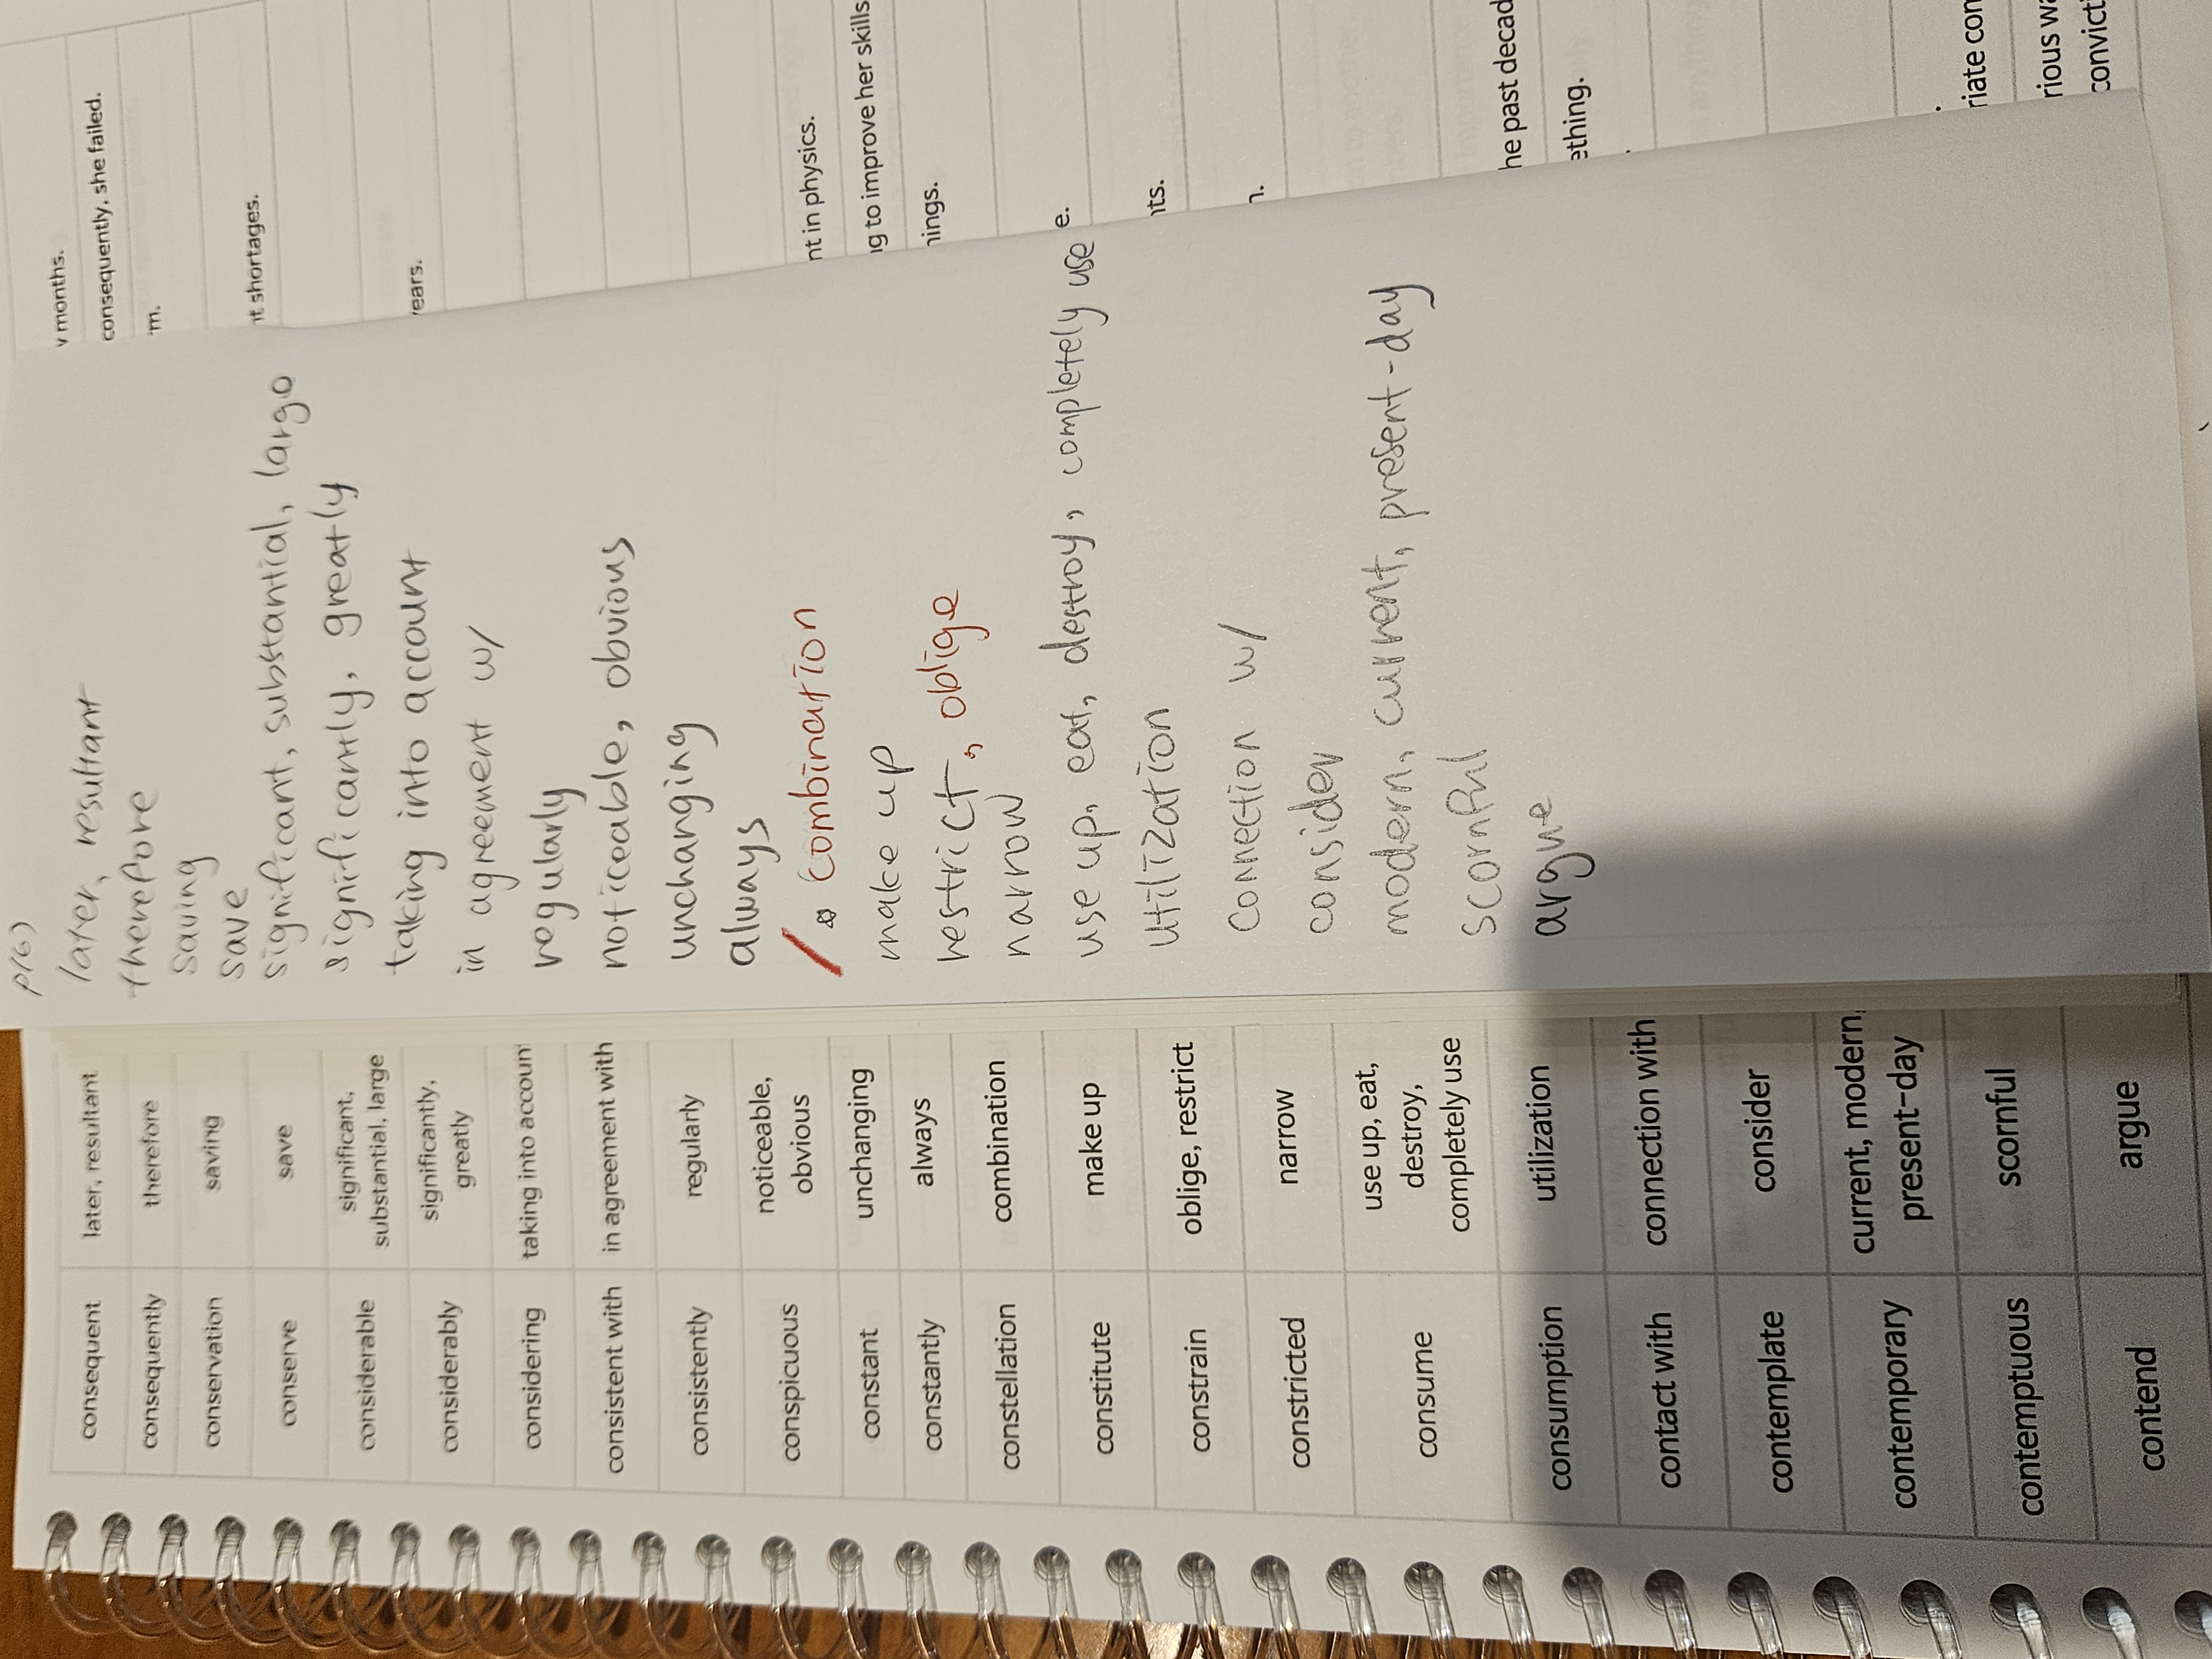 consequent later, resultant
consequently therefore
conservation saving
conserve save
considerable significant,
substantial, large
considerably significantly,
greatly
considering taking into accoun
consistent with in agreement with
consistently regularly
conspicuous noticeable,
obvious
constant unchanging
constantly always
constellation combination
constitute make up
constrain oblige, restrict
constricted narrow
consume use up, eat,
destroy,
completely use
consumption utilization
contact with connection with
contemplate consider
contemporary current, modern,
present-day
contemptuous scornful
contend argue
P16)
later, resultant
therefore
saving
save
significant, substantial, largo
significantly, greatly
taking into account
in agreement w/
regularly
noticeable, obvious
unchanging
always
combination
make up
restrict, oblige
narrow
use up, eat, destroy, completely use
utilization
connection w/
consider
modern, current, present-day
scornful
argue
v months.
consequently, she failed.
m.
nt shortages.
ears.
nt in physics.
ng to improve her skills
nings.
e.
nts.
n.
he past decad
ething.
riate con
rious wa
convict